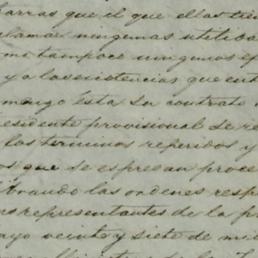 barras que el que ellas tre
clamar ningunas utiliba
mo tampoco ningunos ef
y a las existencias que ent
mango esta su contrato
residente provisional de re
los terminos referidos y
os que se espresan proce
livando las ordenes resp
os representantes de la p
ayo veinte y siete de mil